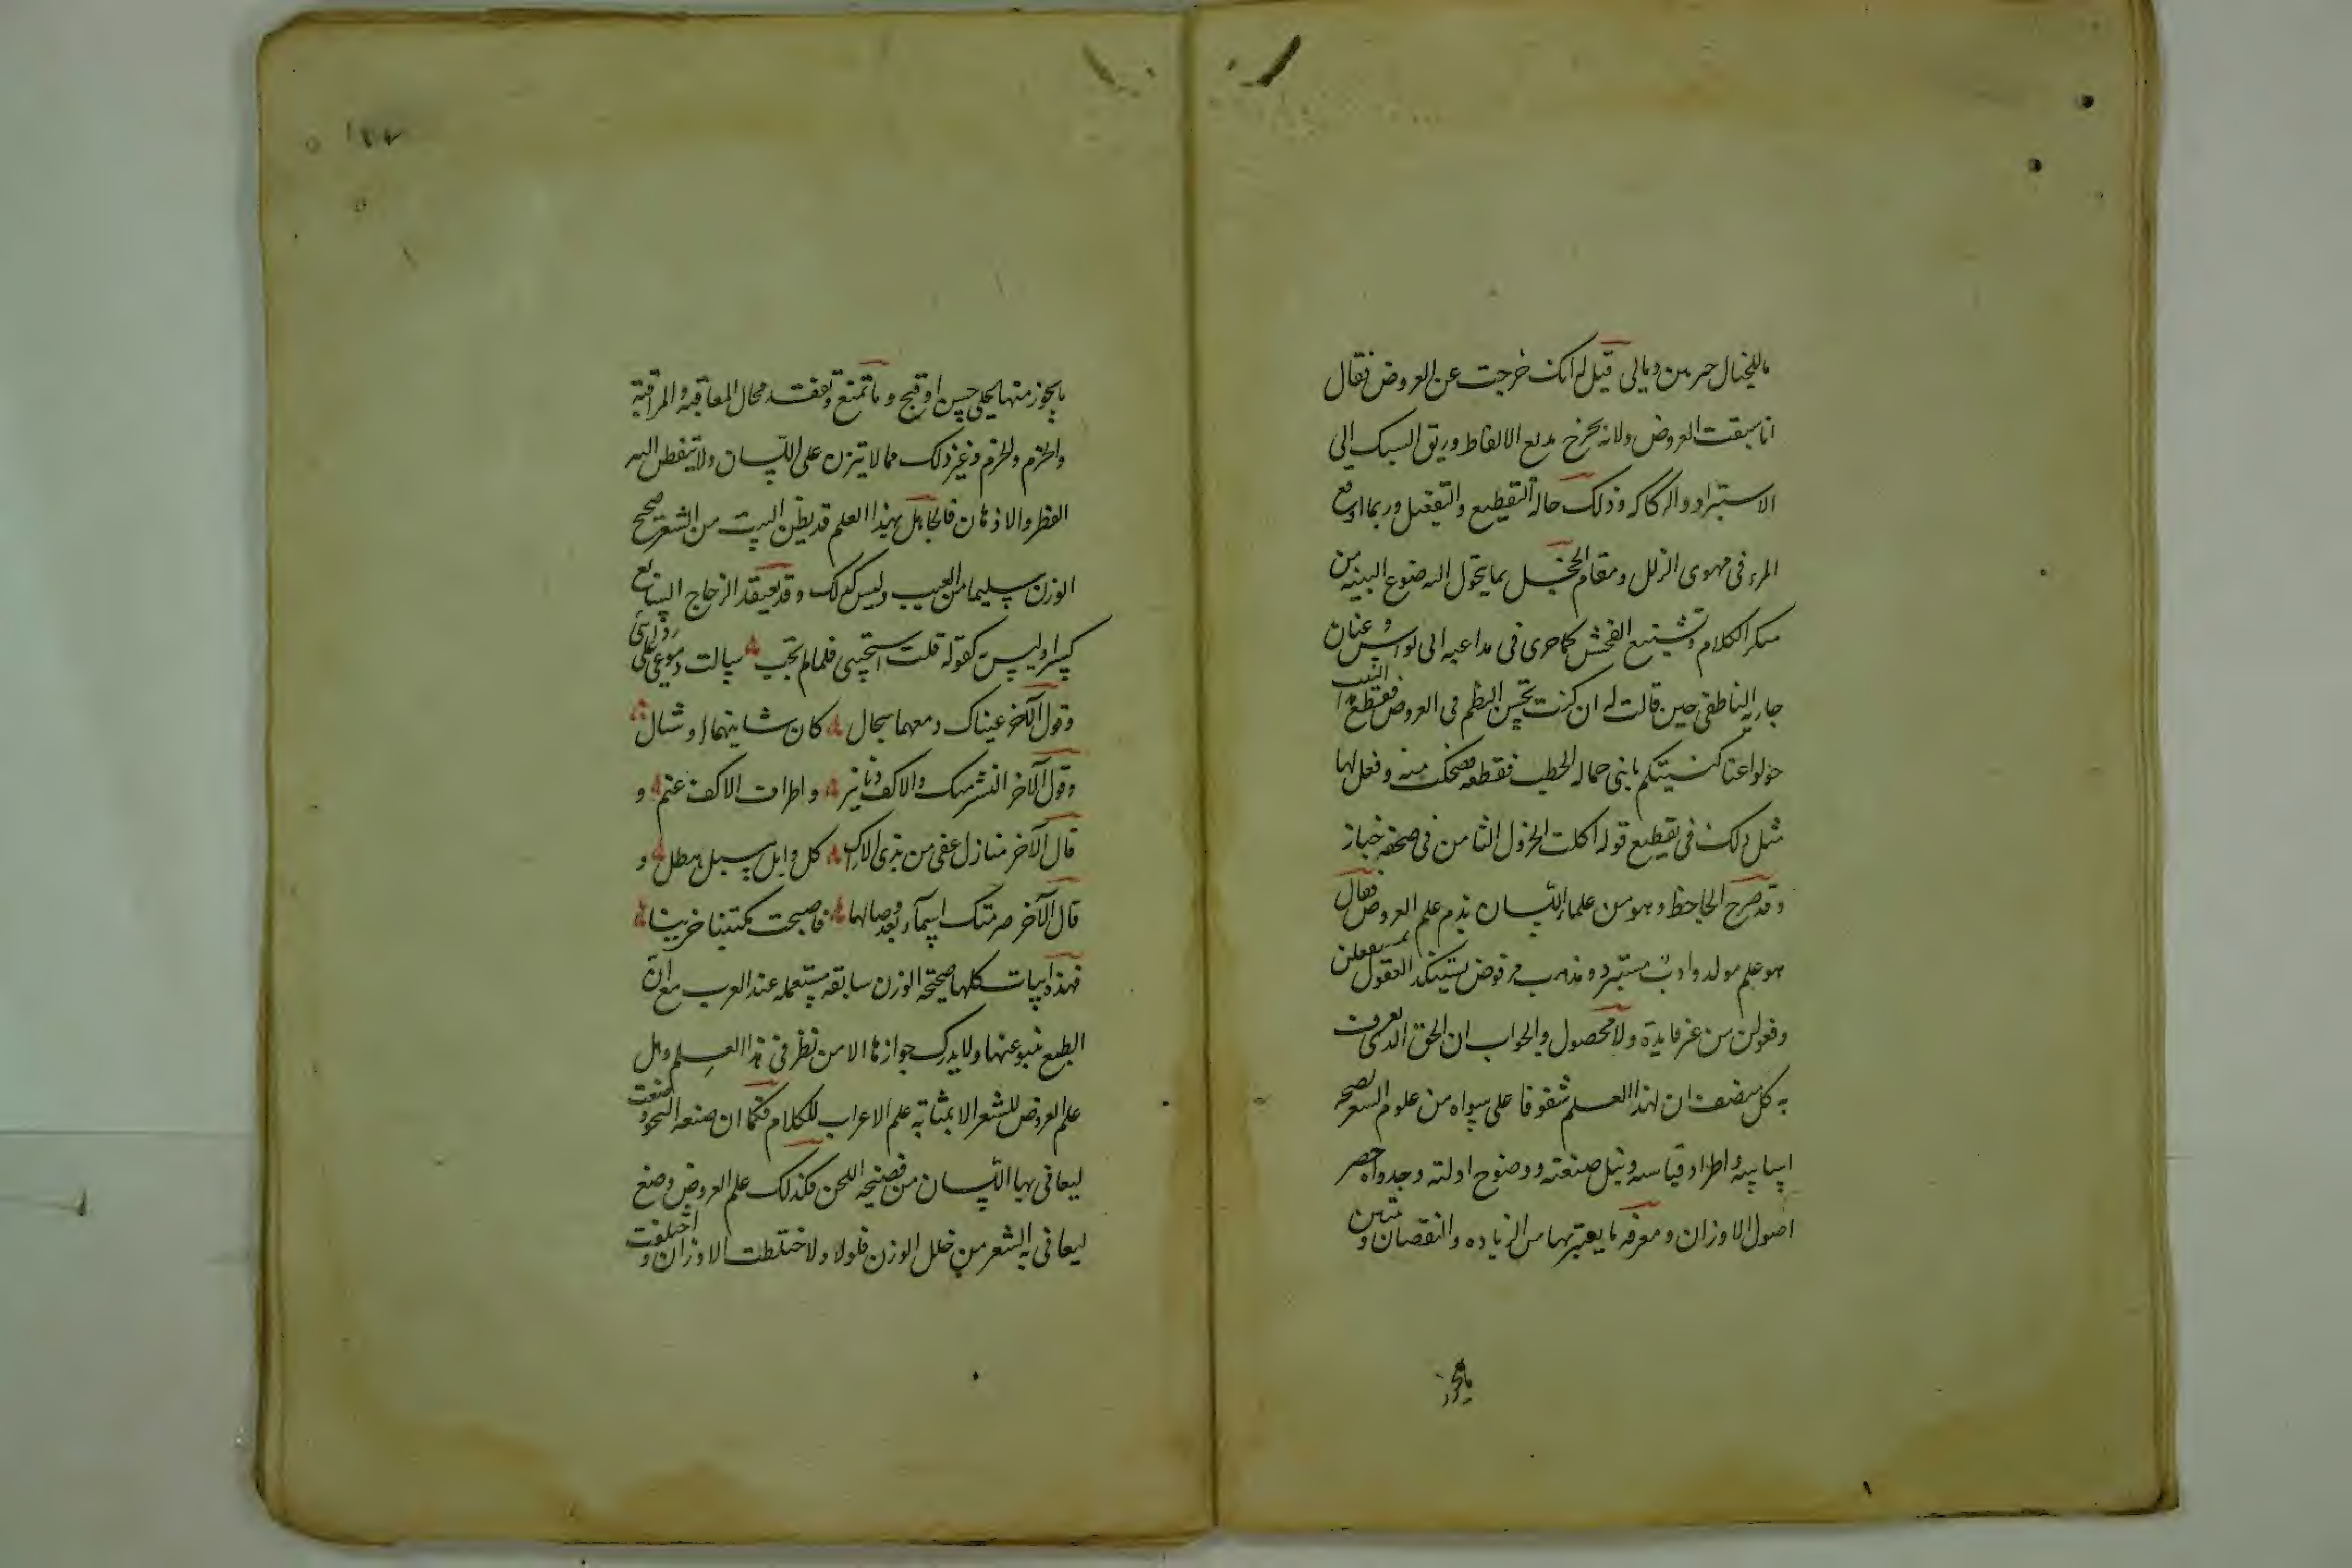 ماللخيال خبرين ومالى قيل له انك خرجت عن العروض فقال
انا سبقت العروض ولانه يخرج بديع الالفاظ وريق السبك الى
الاستبراد والركاكه وذلك حالة التقطيع والتفعيل وربما اوقع
المرء فى مهوى الزلل ومقام الخجل بما يتحول اليه صنوع البنيه من
منكر الكلام وشنيع الفحش كما جرى فى مداعبه ابى نواس وعنان
جارية الناطفى حين قالت له ان كنت تحسن النظم فى العروض فقطع هذا البيت
حولوا عنا كنيستكم يا بنى حماله الحطب فقطعه فضحكت منه وفعل لها
مثل ذلك فى تقطيع قوله اكلت الخردل الشامى فى صحفه خباز
وقد صرح الجاحظ وهو من علماء اللسان بذم علم العروض فقال
هو علم مولد وادب مستبرد ومذهب مرفوض يستنكد العقول بمستفعلن
وفعولن من غير فايدة ولا محصول والجواب ان الحق الذى يعرف
به كل منصف ان لهذا العلم شفوفا على سواه من علوم الشعر لصحة
اساسه واطراد قياسه ونبل صنعته ووضوح ادلته وجدواه حصر
اصول الاوزان ومعرفه ما يعتريها من الزياده والنقصان وتبيين
ما يجوز
١٢٧
ما يجوز منها على حسن او قبح وما تمتنع وتفقد محال المعاقبه والمراقبة
والخرم والخزم وغير ذلك مما لا يتزن على اللسان ولا يتفطن اليه
الفطر والاذهان فالجاهل بهذا العلم قد يظن البيت من الشعر صحيح
الوزن سليما من العيب وليس كذلك وقد يعتقد الزحاف السايغ
كسرا وليس به كقوله قلت استجيبى فلما لم تجب سالت دموعى على ردائى
وقول الآخر عيناك دمعهما سجال كان شانيهما اوشال
وقول الآخر النشر مسك والاكف دنانير واطراف الاكف عنم و
قال الآخر منازل عفى من بذى الاراك كل وابل مسبل هطل و
قال الآخر صرمتك اسماء بعد وصالها فاصبحت مكتئبا حزينا
فهذه ابيات كلها صحيحة الوزن سابقه مستعمله عند العرب مع ان
الطبع ينبو عنها ولا يدرك جوازها الا من نظر فى هذا العلم وهل
علم العروض للشعر الا بمثابة علم الاعراب للكلام فكما ان صنعه النحو وضعت
ليعافى بها اللسان من فضيحة اللحن فكذلك علم العروض وضع
ليعافى به الشعر من خلل الوزن فلولاه لاختلطت الاوزان واختلفت